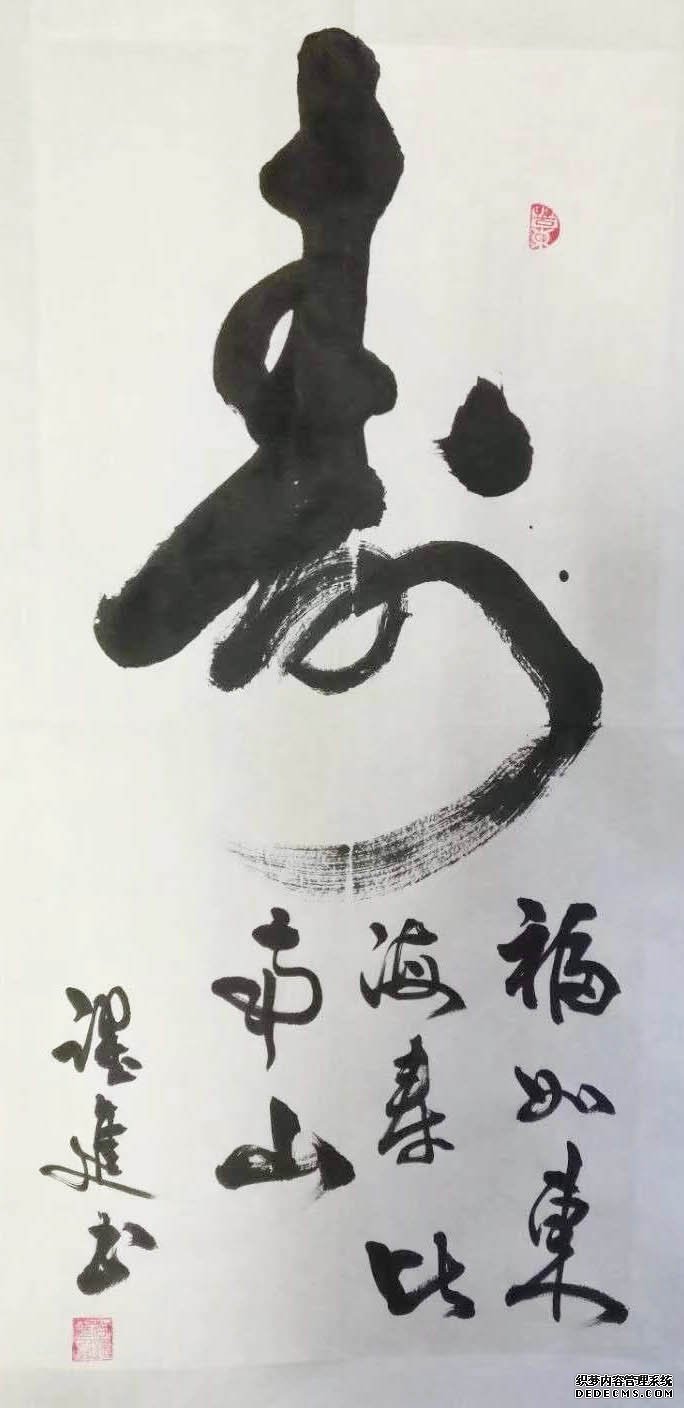 寿
福如東
海寿比
南山
進书
织梦内容管理系统
DEDECMS.COM